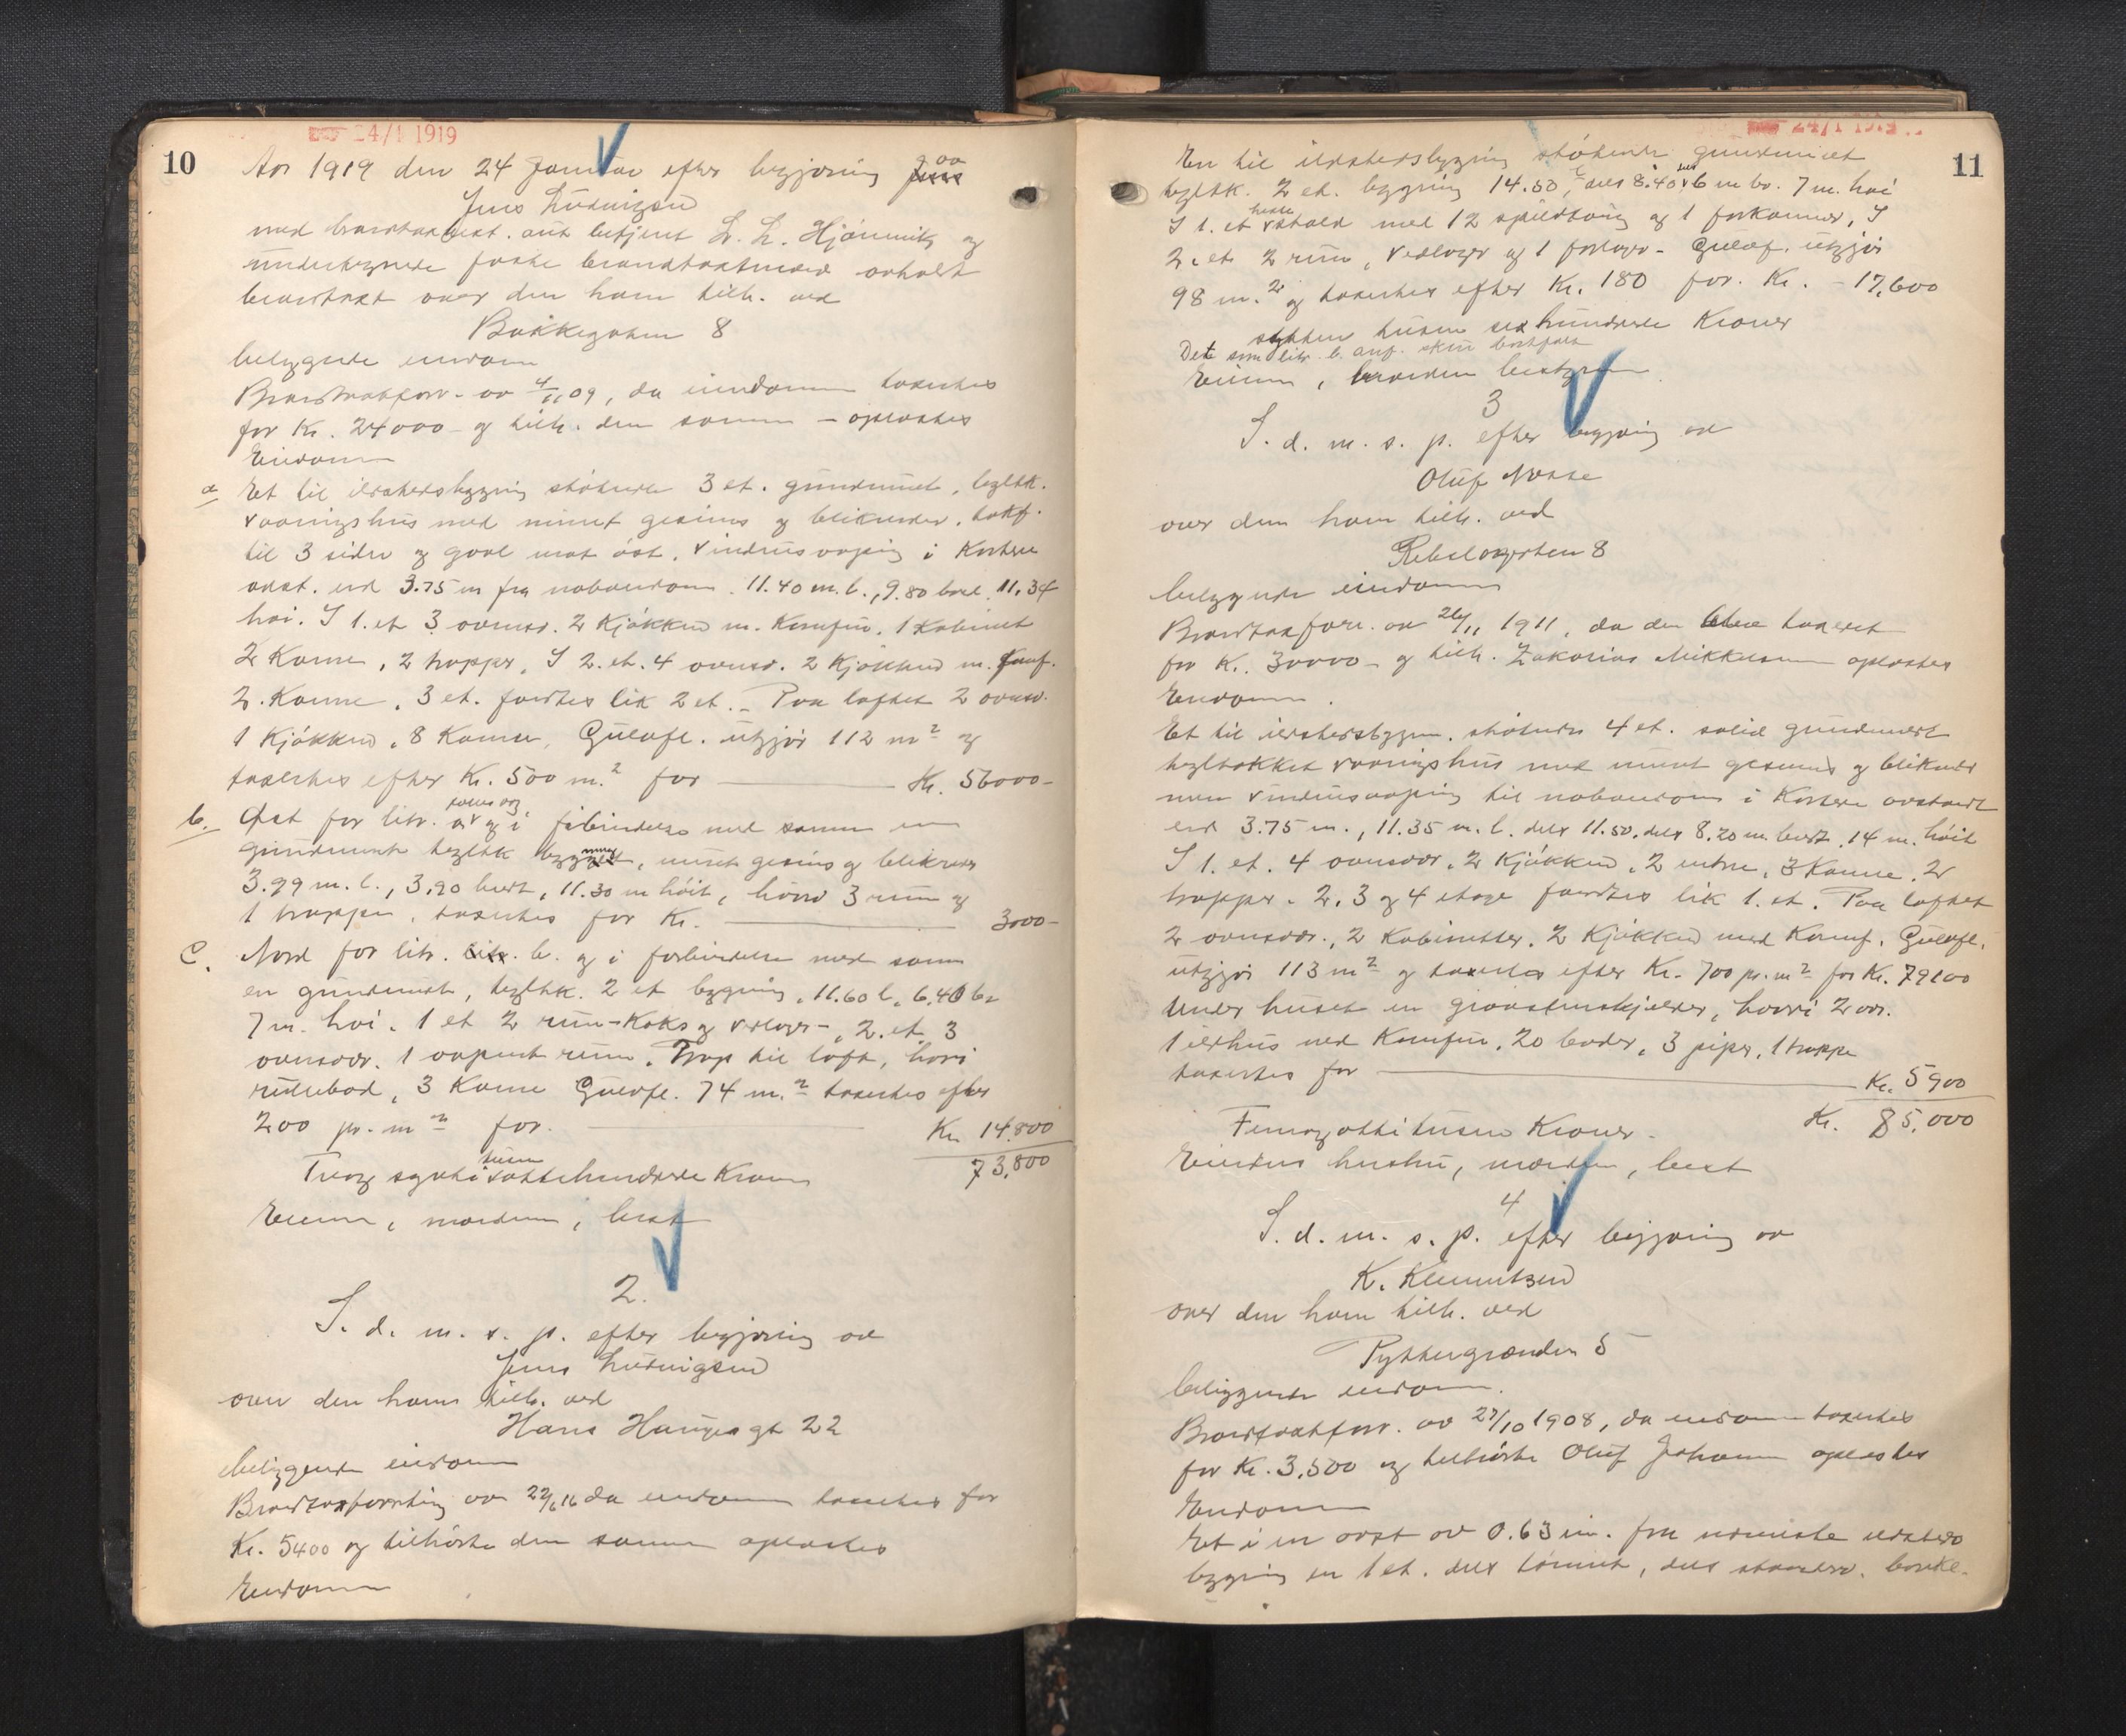 24/1 1919
10
Aar 1919 den 24 Januar efter begjæring av
Jens Ludvigsen
med brandtaxbest. aut betjent L. L. og
undertegnede faste brandtaxtmænd avholdt
brandtaxt over den ham tilh. ved
Bakkegaten 8
beliggende eiendom
Brandtaxtforr. av 4/11 09, da eiendommen taxertes
for Kr. 24000 - og tilh. den samme - oplæstes
Eiendommen
a Et til ildstedsbygning støtende 3 et. grundmuret, tegltk.
vaaningshus med muret gesims og blikrender, takf.
til 3 sider og gavl mot øst, vindusaapning i kortere
avst. end 3.75 m fra naboeiendom. 11.40 m. l., 9.80 bred. 11.34
høi. I 1. et 3 ovnsv. 2 Kjøkken m. Komfur. 1 Kabinet
2 Kamre, 2 trapper, I 2. et. 4 ovnsv. 2 Kjøkken m. Komf.
2. Kamre. 3 et. fordeles lik 2 et. - Paa loftet 2 ovnsv.
1 Kjøkken, 8 Kamre, Gulvfl. utgjør 112 m² og
taxertes efter Kr. 500 m.² for Kr. 56000-
b. Øst for litr. a og i forbindelse med samme en
grundmuret tegltk bygning, muret gesims og blikrender
3.99 m. l., 3.20 bredt, 11.30 m høit, hvori 3 rum og
1 trappe, taxertes for Kr. 3000-
C. Nord for litr. b. og i forbindelse med samme
en grundmuret, tegltk. 2 et bygning, 11.60 l, 6.40 br
7 m. høi. 1 et 2 rum - Koks og vedlager -, 2. et. 3
ovnsvær. 1 aapent rum. Trap til loft, hvori
rullebod, 3 Kamre Gulvfl. 74 m.² taxertes efter
200 pr. m² for. Kr. 14.800
73.800
Treogsytti tusen ottehundrede Kroner
Eieren, mænden, best
2.
S. d. m. s. p. efter begjæring av
Jens Ludvigsen
over den ham tilh. ved
Hans Hauges gt 22
beliggende eiendom
Brandtaxforretning av 22/6 16 da eiendommen taxertes for
Kr. 5400 og tilhørte den samme oplæstes
Eiendommen
24/1 1919
11
En til ildstedsbygning støtende grundmuret
tegltk. 2 et. bygning 14.50 l, dels 8.40 dels 6 m br. 7 m. høi
I 1. et hestestald med 12 spiltaug og 1 forkammer, I
2. et 2 rum, vedlager og 1 forlager - Gulvfl. utgjør
98 m.² og taxertes efter Kr. 180 for. Kr. - 17.600
sytten tusen sexhundrede Kroner
Det som litr. b. anf. skur bortfalt
Eieren, mænden bestyrer
3
S. d. m. s. p. efter begjæring av
Oluf Næsse
over den ham tilh. ved
beliggende eiendom
Brandtaxforr. av 26/11 1911, da den blev taxeret
for Kr. 30000 - og tilh. Zakarias Mikkelsen oplæstes
Eiendommen.
Et til ildstedsbygn. støtende 4 et. solid grundmuret
tegltækket vaaningshus med muret gesims og blikrender
men vindusaapning til naboeiendom i kortere avstand
end 3.75 m., 11.35 m. l. dels 11.50, dels 8.20 m. bredt, 14 m. høit
I 1. et. 4 ovnsvær. 2 Kjøkken, 2 entre, 3 Kamre, 2
trapper. 2, 3 og 4 etage fordeles lik 1. et. Paa loftet
2 ovnsvær., 2 Kabinetter, 2 Kjøkken med Komf. Gulvfl.
utgjør 113 m² og taxertes efter Kr. 700 pr. m² for Kr. 79100
Under huset en graastenskjelder, hvori 2 vær.
1 ildhus med Komfur, 20 boder, 3 piper, 1 trappe
taxertes for Kr. 5900
Kr. 85.000
Femogottitusen Kroner -
Eierens hustru, mænden, best
4
S. d. m. s. p. efter begjæring av
K. Klementsen
over den ham tilh. ved
Pyttergrænden 5
beliggende eiendom.
Brandtaxtforr. av 27/10 1908, da eiendommen taxertes
for Kr. 3.500 og tilhørte Oluf Johansen oplæstes
Eiendommen
Et i en avst av 0.63 m. fra nærmeste ildsteds
bygning en 1 et. dels tømret, dels standerv. bordkl.